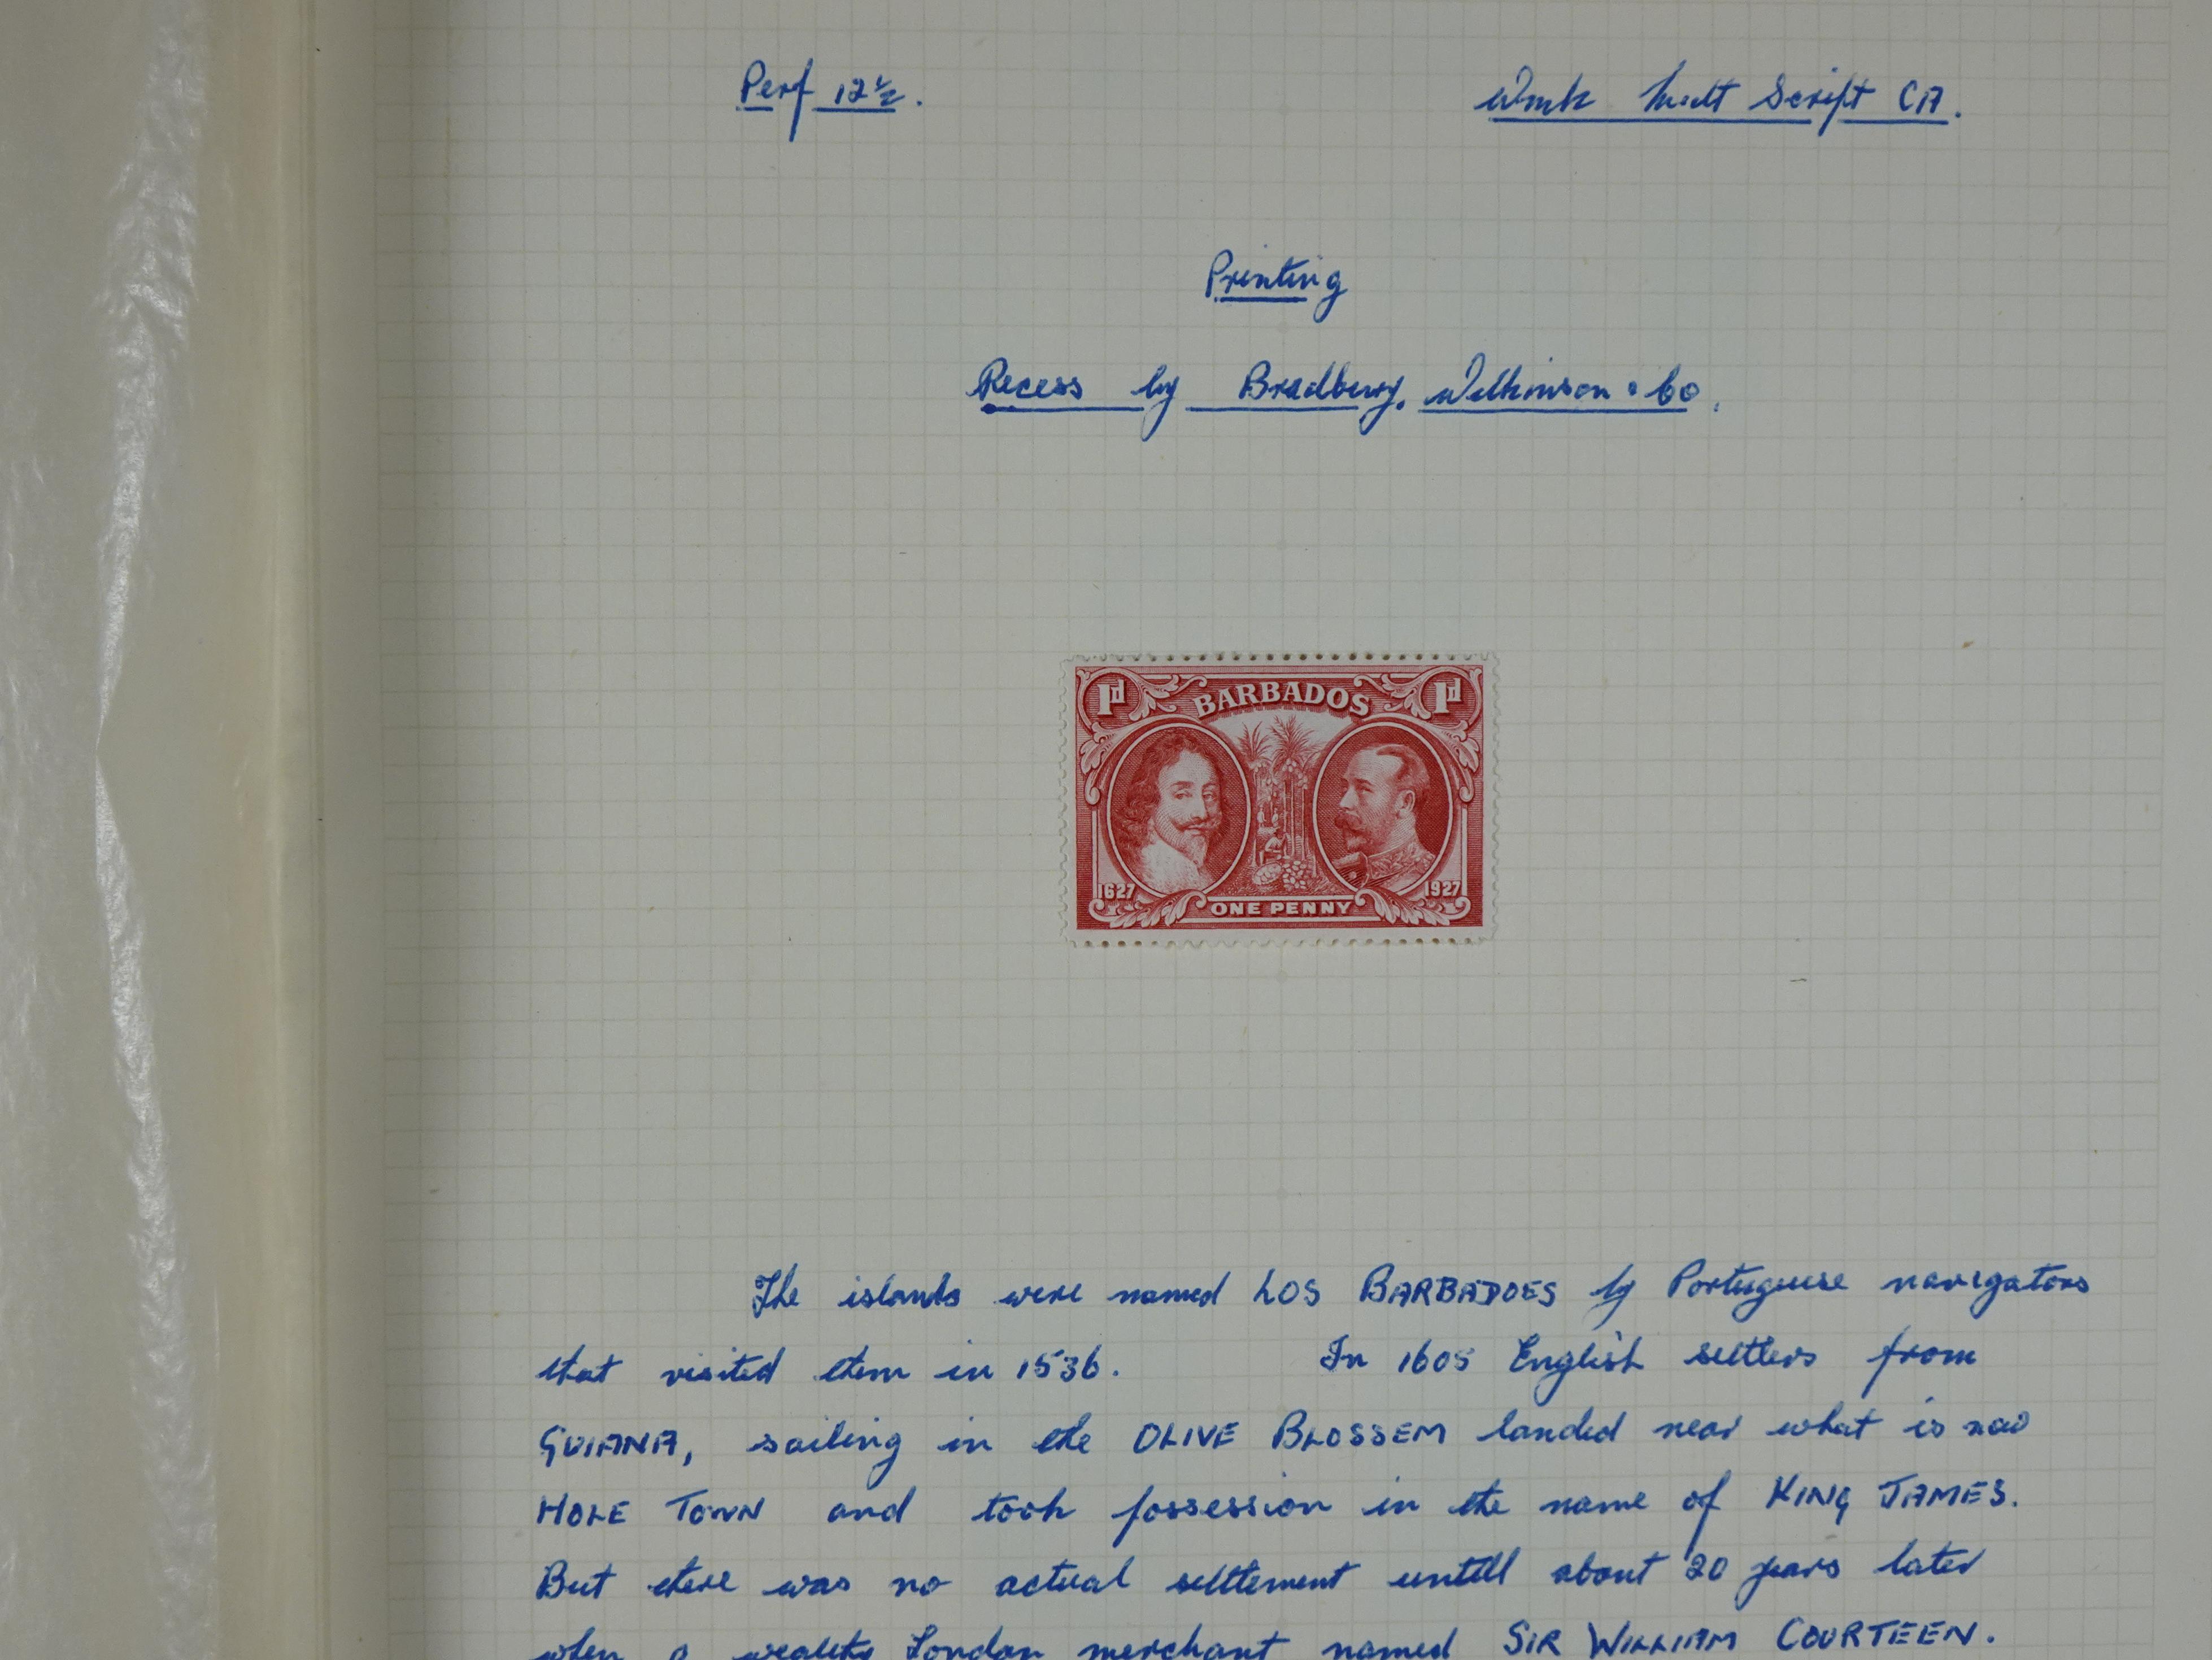 Perf 12½.
Wmk Mult Script CA.
Printing
Recess by Bradbury, Wilkinson & Co.
1d BARBADOS 1d
1627 1927
ONE PENNY
The islands were named LOS BARBADOES by Portuguese navigators
that visited them in 1536. In 1605 English settlers from
GUIANA, sailing in the OLIVE BLOSSEM landed near what is now
HOLE TOWN and took possession in the name of KING JAMES.
But there was no actual settlement untill about 20 years later
when a wealthy London merchant named SIR WILLIAM COURTEEN.